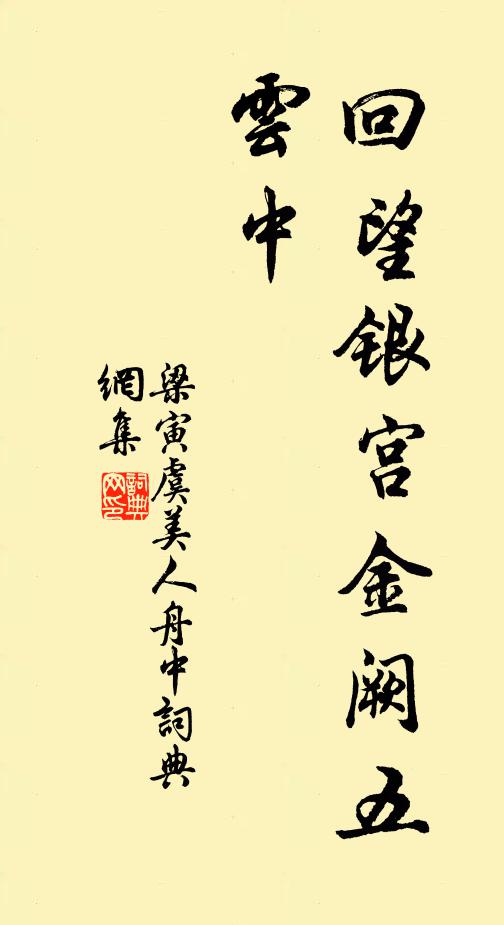 回望银宫金阙五
雲中
梁寅虞美人舟中詞典
網集
詞典
网印